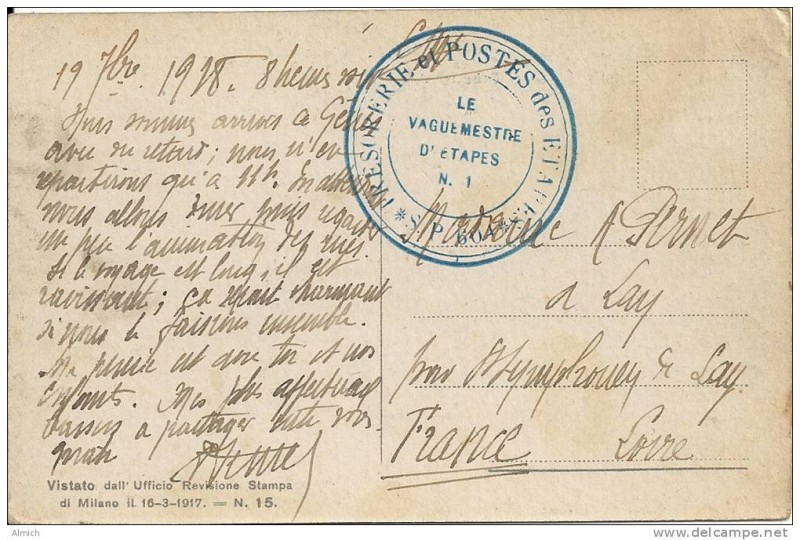 19 7bre 1918. 8 heures soir
Nous sommes arrivés à Gênes
avec du retard ; nous n'en
repartirons qu'à 11h. En attendant
nous allons diner puis regarder
un peu l'animation des rues.
Si le voyage est long, il est
ravissant ; ça serait charmant
si nous le faisions ensemble.
Ma pensée est avec toi et nos
enfants. Mes plus affectueux
baisers à partager entre vous
Vistato dall' Ufficio Revisione Stampa
di Milano il 16-3-1917. — N. 15.
TRESORERIE et POSTES des ETAPES
LE
VAGUEMESTRE
D'ETAPES
N. 1
* S.P. *
Madame Pernet
à Lay
par St Symphorien de Lay
France Loire
Almich
http://www.delcampe.net